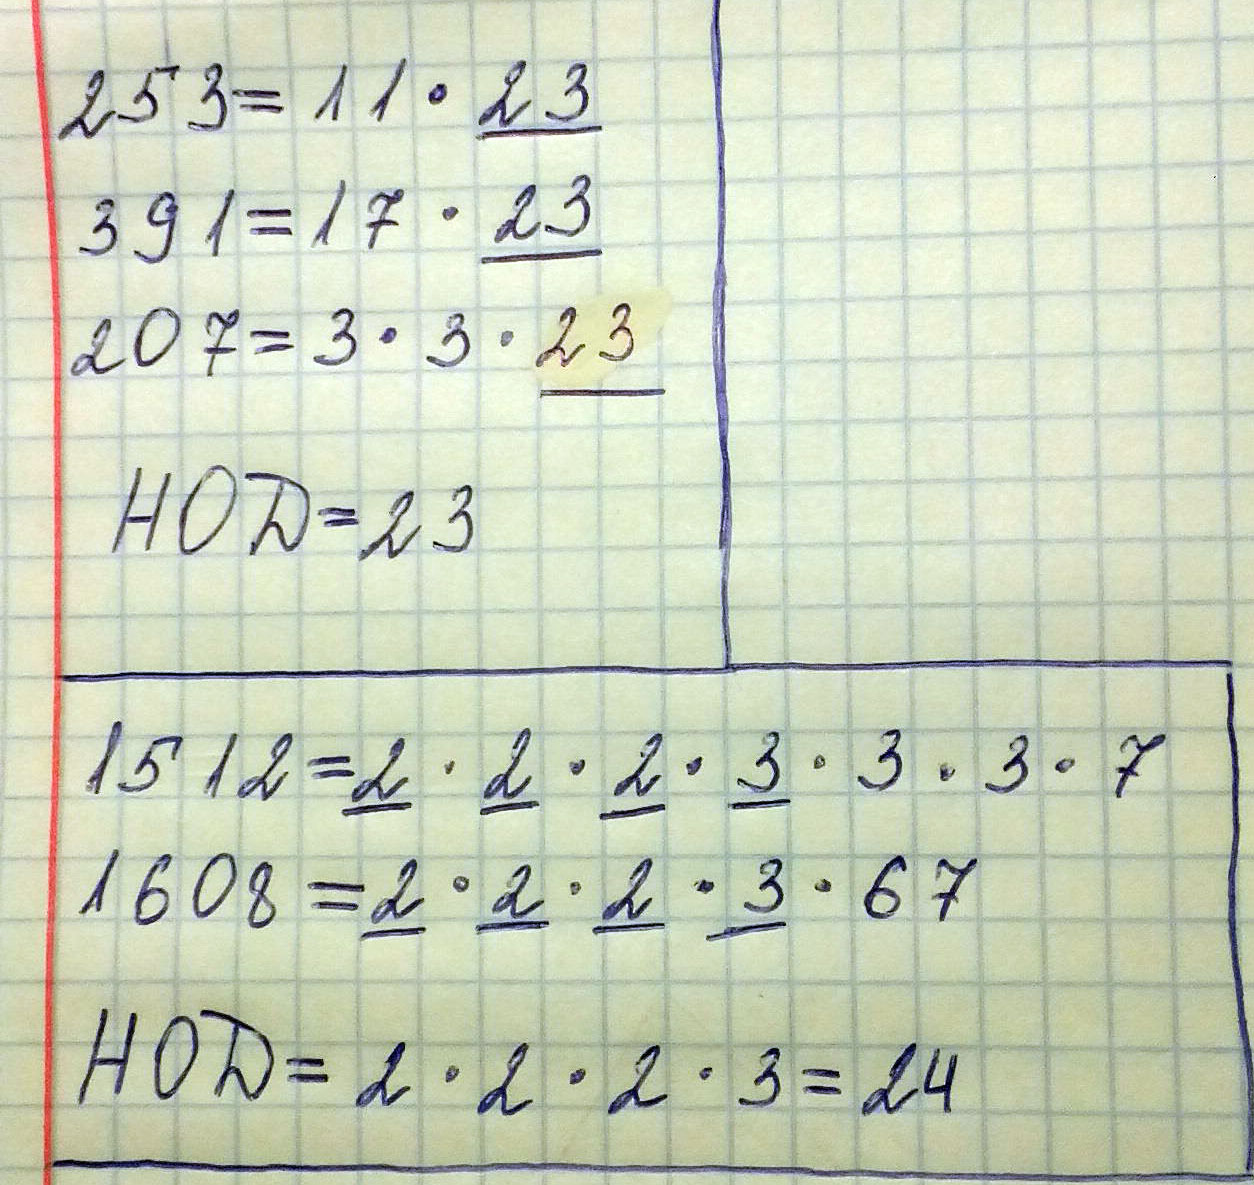 253=11·23
391=17·23
207=3·3·23
НОД=23
1512=2·2·2·3·3·3·7
1608=2·2·2·3·67
НОД=2·2·2·3=24